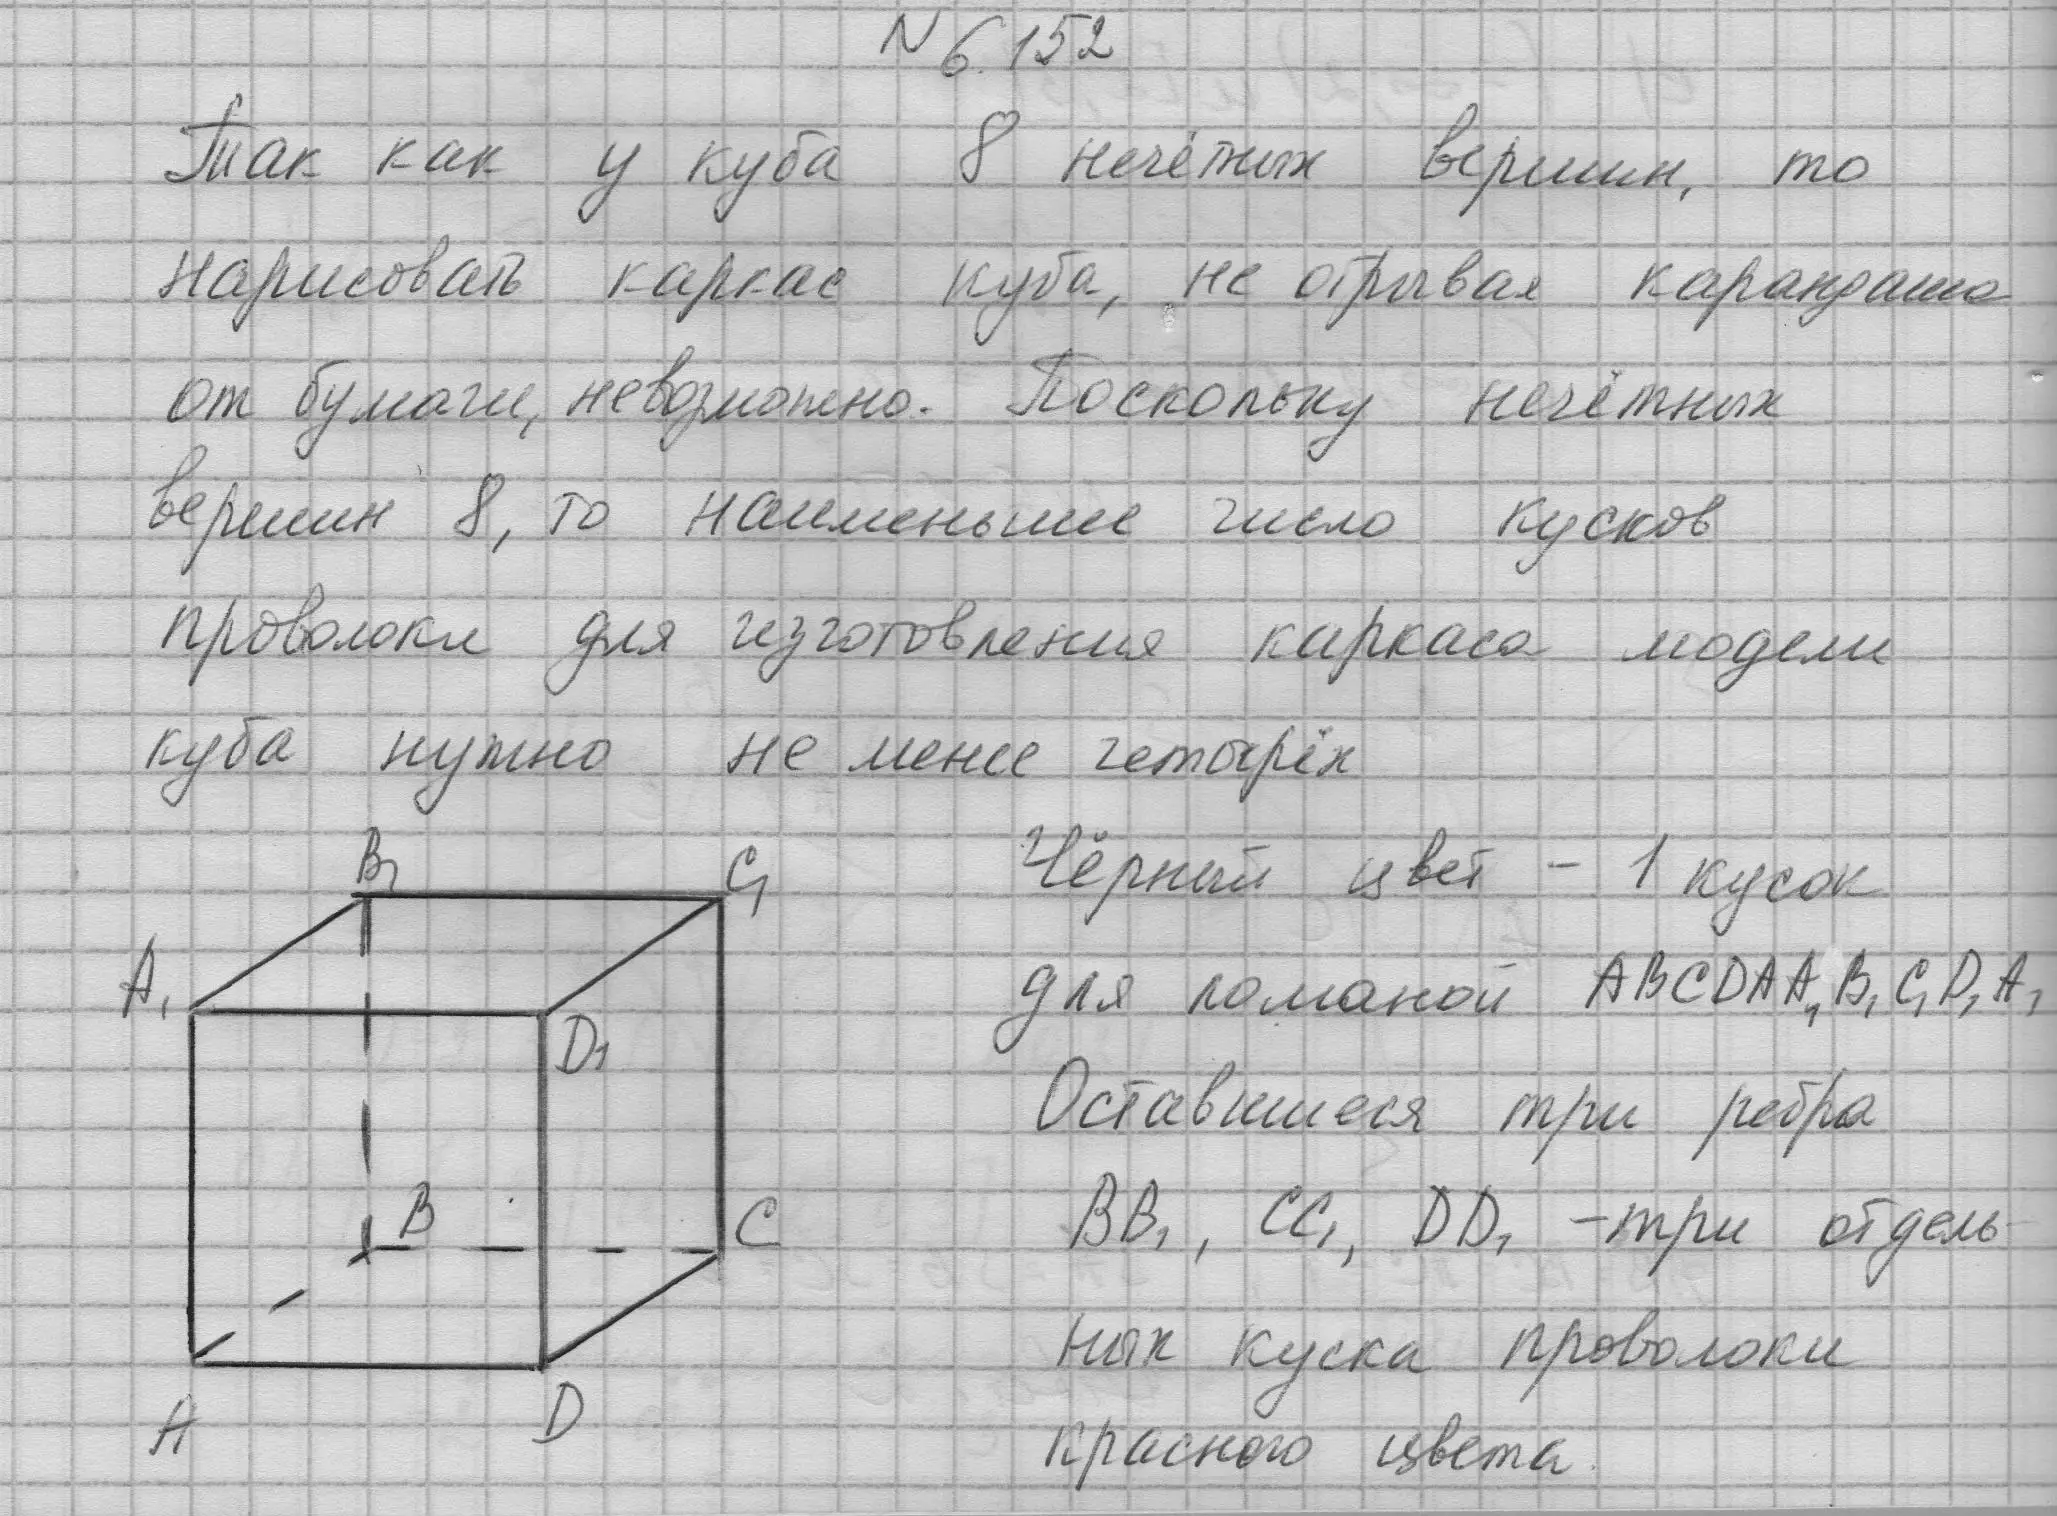 N 6.152
Так как у куба 8 нечётных вершин, то
нарисовать каркас куба, не отрывая карандаша
от бумаги, невозможно. Поскольку нечётных
вершин 8, то наименьшее число кусков
проволоки для изготовления каркаса модели
куба нужно не менее четырёх
B₁
C₁
Чёрный цвет - 1 кусок
A₁
для ломаной ABCDAA₁B₁C₁D₁A₁
D₁
Оставшиеся три ребра
B
C
BB₁, CC₁, DD₁ - три отдель-
ных куска проволоки
A
D
красного цвета.